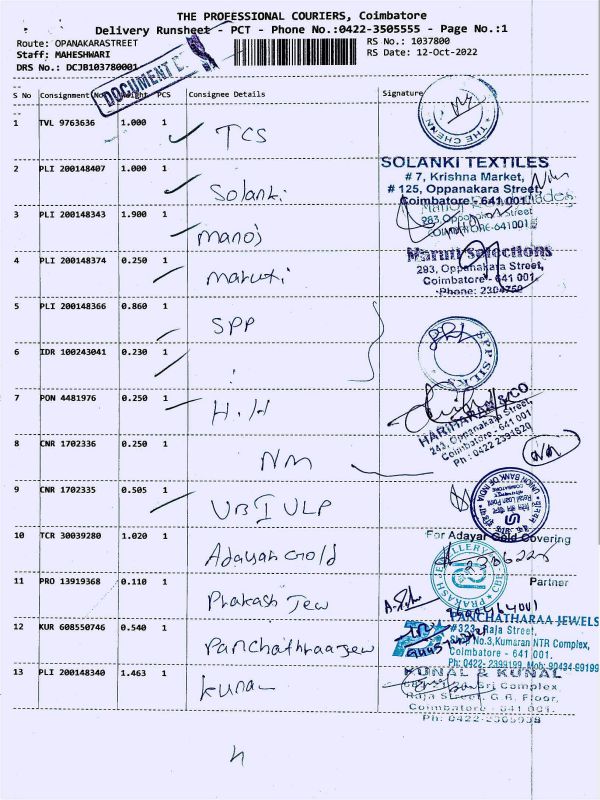 THE PROFESSIONAL COURIERS, Coimbatore
Delivery Runsheet - PCT - Phone No.:0422-3505555 - Page No.:1
Route: OPANAKARASTREET RS No.: 1037800
Staff: MAHESHWARI RS Date: 12-Oct-2022
DRS No.: DCJB103780001
DOCUMENT
S No Consignment No. PCS Consignee Details Signature
1 TVL 9763636 1.000 1 TCS
THE CHENN
2 PLI 200148407 1.000 1 Solanki
SOLANKI TEXTILES
# 7, Krishna Market,
# 125, Oppanakara Street,
Coimbatore - 641 001.
3 PLI 200148343 1.900 1 manoj
283, Oppanakara Street
COIMBATORE-641001
4 PLI 200148374 0.250 1 maruti
Maruti Selections
293, Oppanakara Street,
Coimbatore - 641 001.
Phone: 2304750
5 PLI 200148366 0.860 1 SPP
6 IDR 100243041 0.230 1
SPP SILKS
7 PON 4481976 0.250 1 H.H
HARIHARAN & CO
243, Oppanakara Street,
Coimbatore - 641 001
Ph : 0422 2391820
8 CNR 1702336 0.250 1 NM
9 CNR 1702335 0.505 1 UBI ULP
UNION BANK OF INDIA
10 TCR 30039280 1.020 1 Adayar Gold
For Adayar Gold Covering
Partner
11 PRO 13919368 0.110 1 Prakash Jew
PRAKASH JEWELLERY CBE
12 KUR 608550746 0.540 1 Panchathraajew
PANCHATHARAA JEWELS
# 323, Raja Street,
Shop No.3, Kumaran NTR Complex,
Coimbatore - 641 001.
Ph: 0422- 2399199, Mob: 90434 69199
13 PLI 200148340 1.463 1 kunal
KUNAL & KUNAL
Sri Complex
Raja Street, G.R. Floor,
Coimbatore - 641 001.
Ph: 0422-2305938